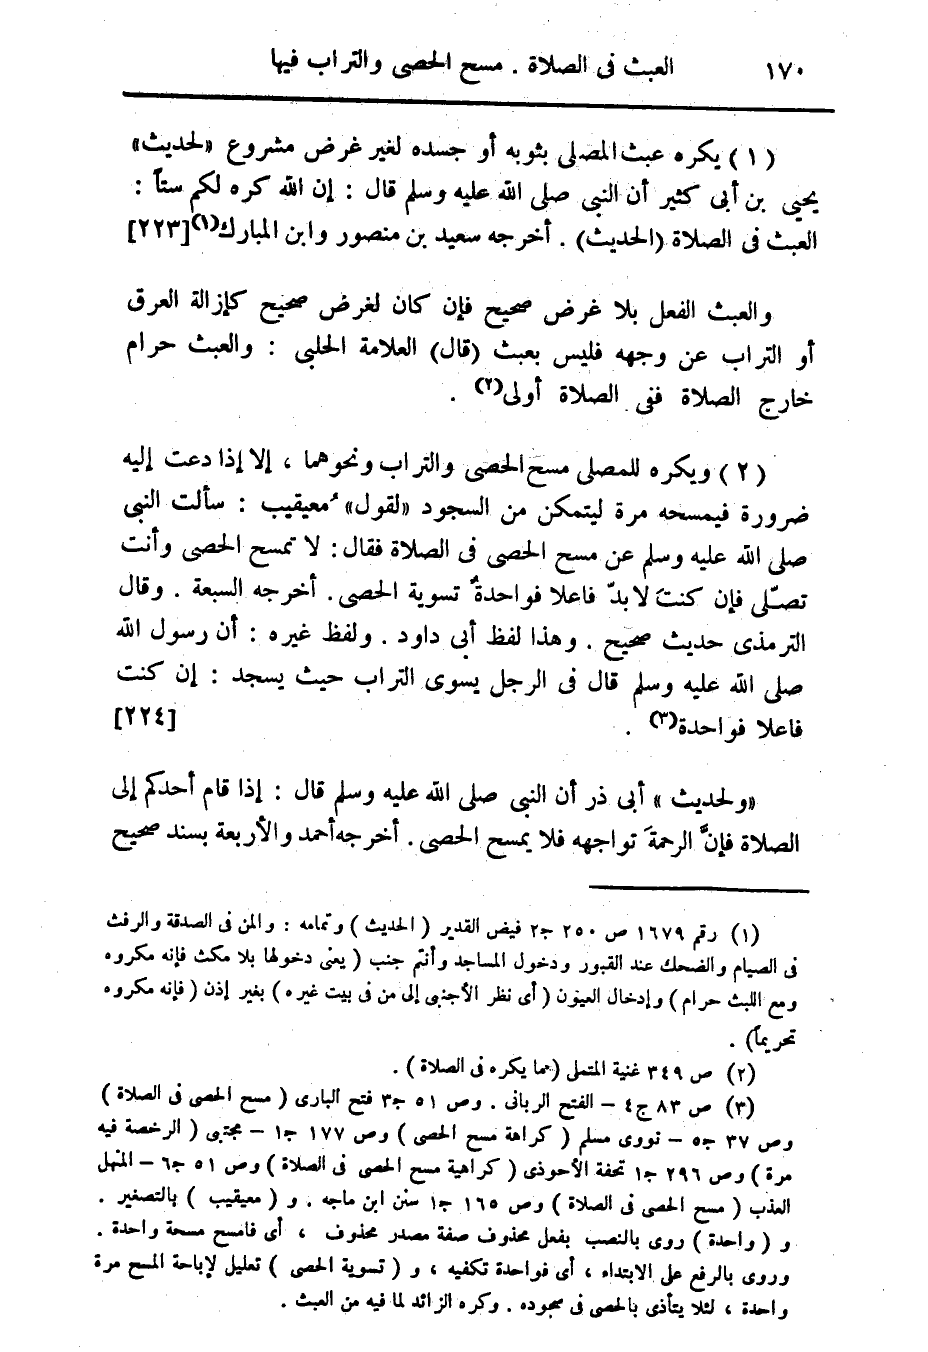 ١٧٠ العبث فى الصلاة . مسح الحصى والتراب فيها
(١) يكره عبث المصلى بثوبه أو جسده لغير غرض مشروع «لحديث»
يحيى بن أبى كثير أن النبى صلى الله عليه وسلم قال : إن الله كره لكم ستاً :
العبث فى الصلاة (الحديث) . أخرجه سعيد بن منصور وابن المبارك(١)[٢٢٣]
والعبث الفعل بلا غرض صحيح فإن كان لغرض صحيح كإزالة العرق
أو التراب عن وجهه فليس بعبث (قال) العلامة الحلبى : والعبث حرام
خارج الصلاة ففى الصلاة أولى(٢) .
(٢) ويكره للمصلى مسح الحصى والتراب ونحوهما ، إلا إذا دعت إليه
ضرورة فيمسحه مرة ليتمكن من السجود «لقول» مُعيقيب : سألت النبى
صلى الله عليه وسلم عن مسح الحصى فى الصلاة فقال : لا تمسح الحصى وأنت
تصلّى فإن كنتَ لابدّ فاعلا فواحدةٌ تسوية الحصى . أخرجه السبعة . وقال
الترمذى حديث صحيح . وهذا لفظ أبى داود . ولفظ غيره : أن رسول الله
صلى الله عليه وسلم قال فى الرجل يسوى التراب حيث يسجد : إن كنت
فاعلا فواحدة(٣) . [٢٢٤]
«ولحديث» أبى ذر أن النبى صلى الله عليه وسلم قال : إذا قام أحدكم إلى
الصلاة فإنَّ الرحمةَ تواجهه فلا يمسح الحصى . أخرجه أحمد والأربعة بسند صحيح
(١) رقم ١٦٧٩ ص ٢٥٠ ج٢ فيض القدير ( الحديث ) وتمامه : والمن فى الصدقة والرفث
فى الصيام والضحك عند القبور ودخول المساجد وأنتم جنب ( يعنى دخولها بلا مكث فإنه مكروه
ومع اللبث حرام ) وإدخال العيون ( أى نظر الأجنبى إلى من فى بيت غيره ) بغير إذن ( فإنه مكروه
تحريماً) .
(٢) ص ٣٤٩ غنية المتملى (مما يكره فى الصلاة ) .
(٣) ص ٨٣ ج٤ – الفتح الربانى . وص ٥١ ج٣ فتح البارى ( مسح الحصى فى الصلاة )
وص ٣٧ ج٥ – نووى مسلم ( كراهة مسح الحصى ) وص ١٧٧ ج١ – مجتبى ( الرخصة فيه
مرة ) وص ٢٩٦ ج١ تحفة الأحوذى ( كراهية مسح الحصى فى الصلاة ) وص ٥١ ج٦ – المنهل
العذب ( مسح الحصى فى الصلاة ) وص ١٦٥ ج١ سنن ابن ماجه . و ( معيقيب ) بالتصغير .
و ( واحدة ) روى بالنصب بفعل محذوف صفة مصدر محذوف ، أى فامسح مسحة واحدة .
وروى بالرفع على الابتداء ، أى فواحدة تكفيه ، و ( تسوية الحصى ) تعليل لإباحة المسح مرة
واحدة ، لئلا يتأذى بالحصى فى سجوده . وكره الزائد لما فيه من العبث .